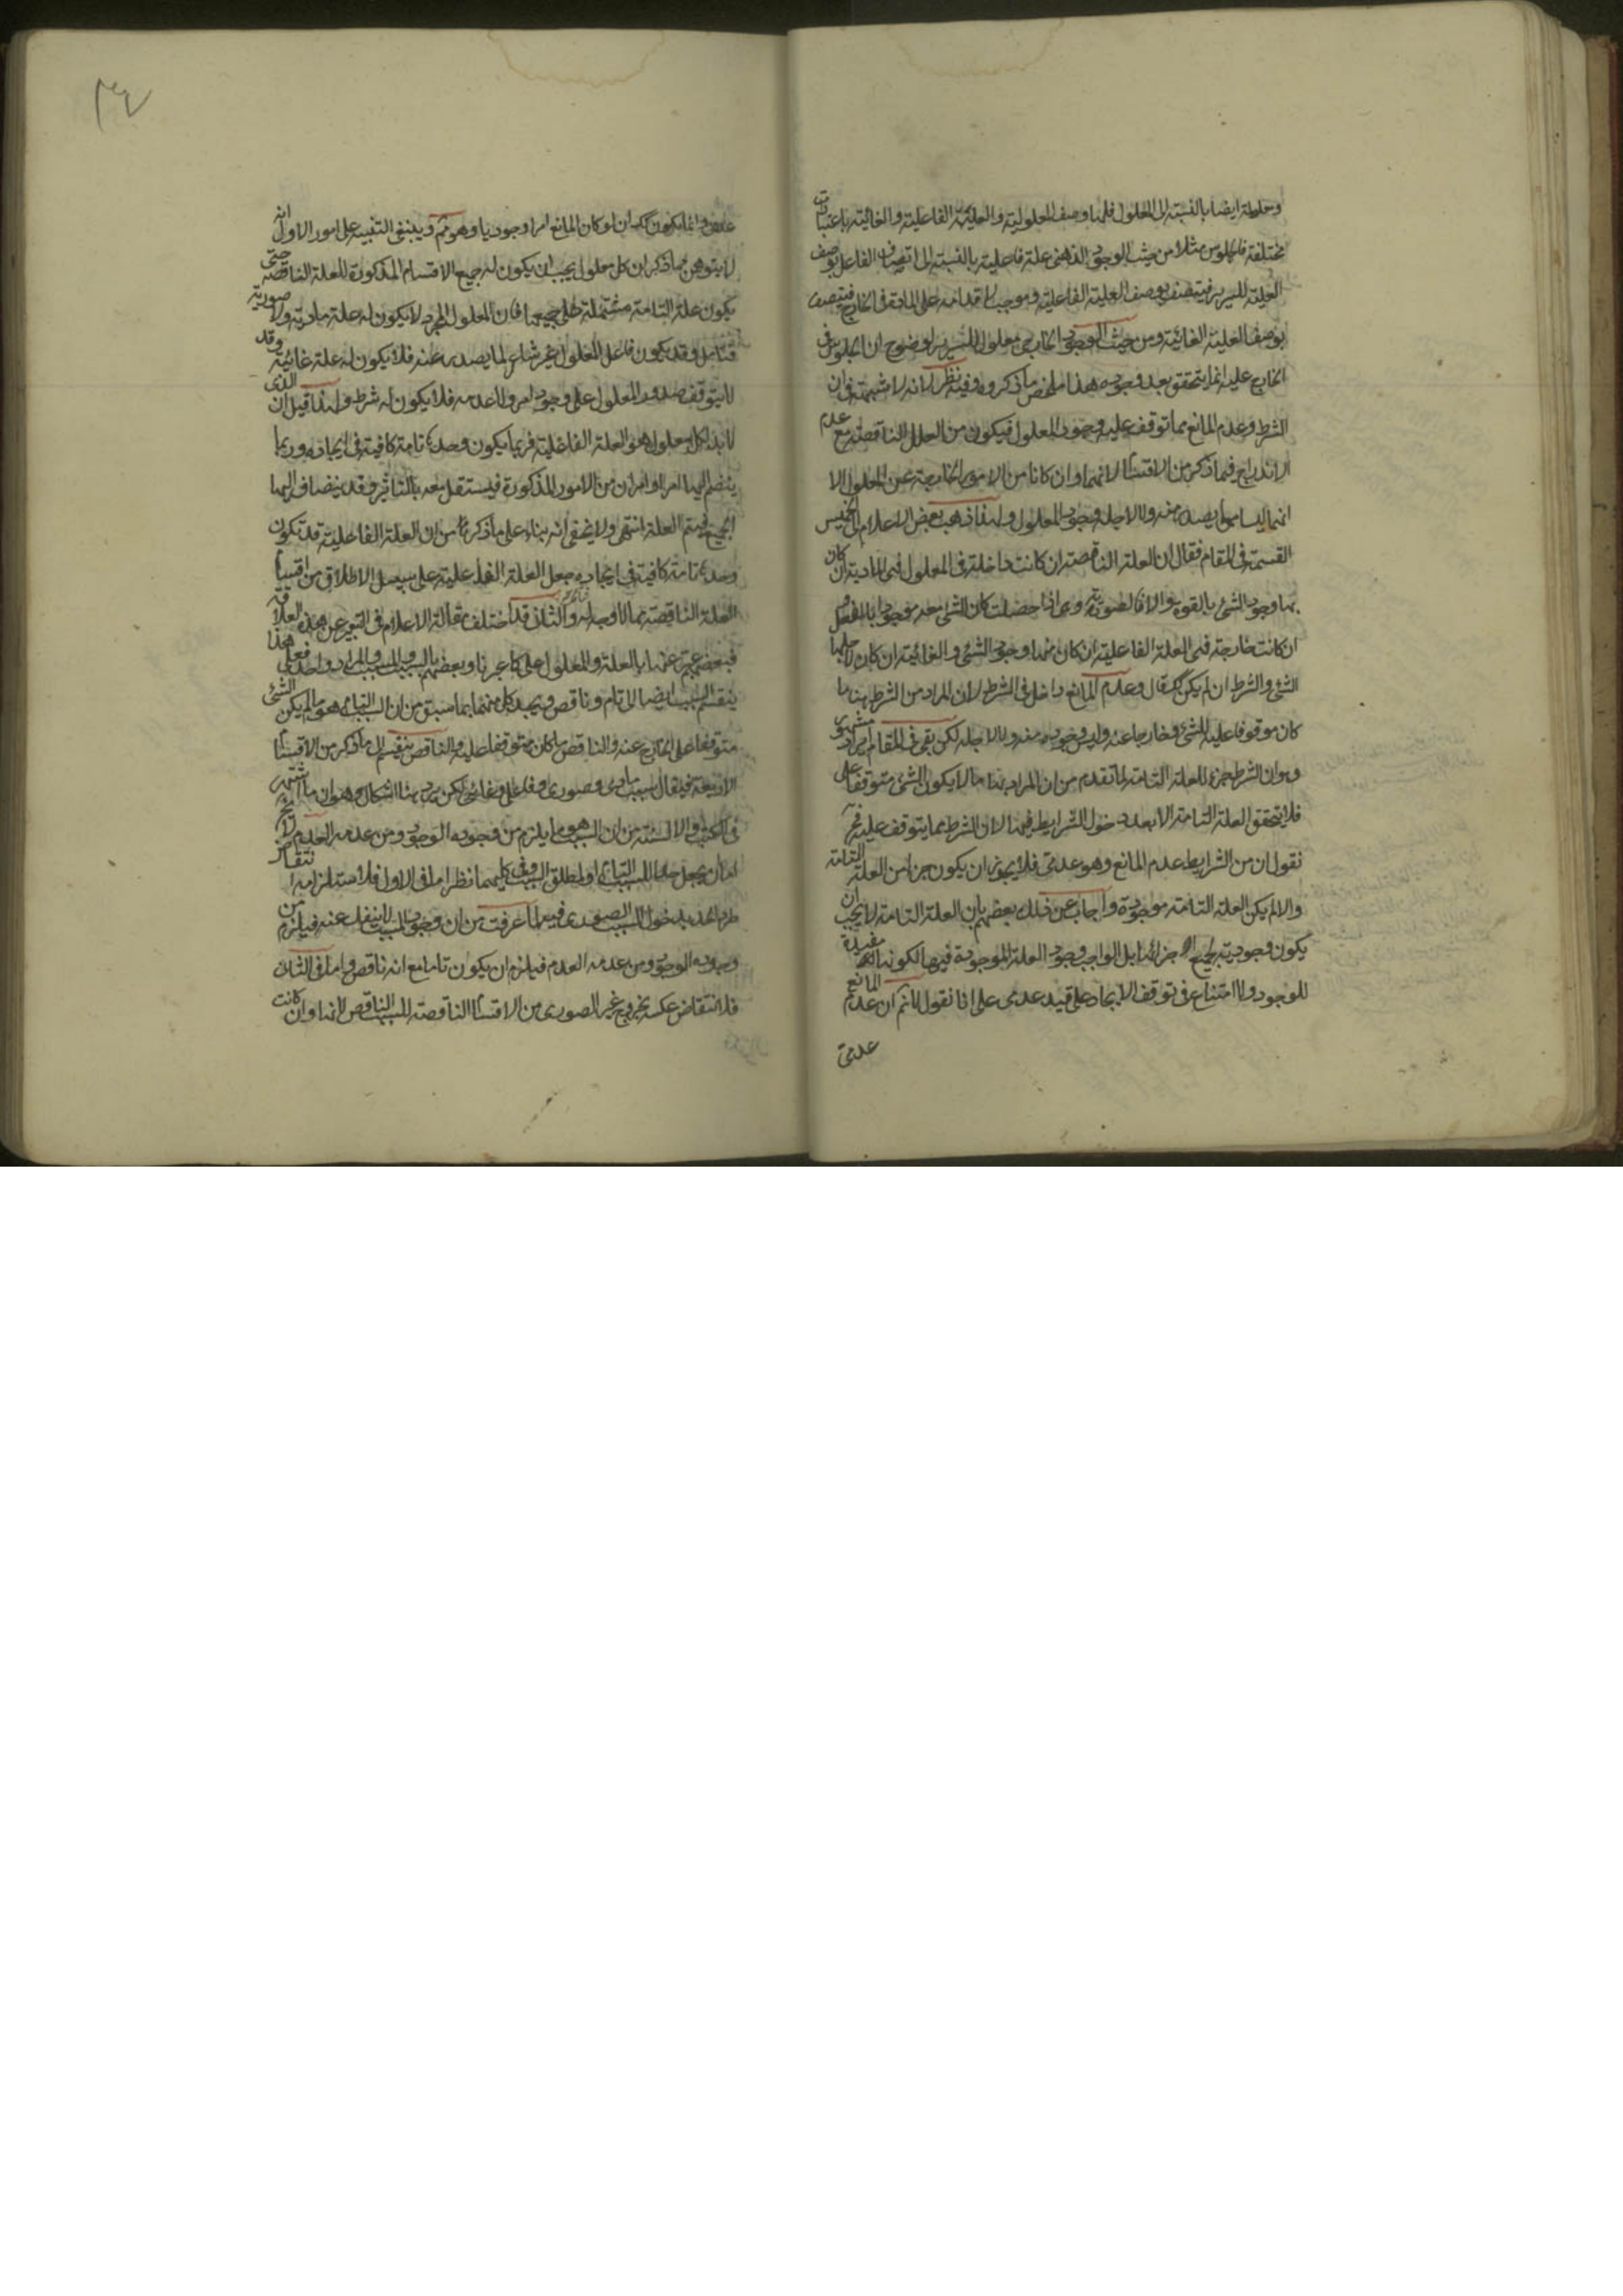 وخلطة ايضا بالنسبة الى المعلول فلهما وصف المعلولية والعلية الفاعلية والغائية باعتبارات
مختلفة فالجلوس مثلا من حيث الوجود الذهنى علة فاعلية بالنسبة الى اتصاف الفاعل بوصف
العلية للسرير فيتصف بوصف العلية الفاعلية وموجب لاقدامه على المادة فى الخارج فيتصف
بوصف العلية الغائية ومن حيث الوجود الخارجى معلول للسرير لوضوح ان الجلوس فى
الخارج عليه انما يتحقق بعد وجوده هذا ملخص ما ذكروه وفيه نظر لانه لا شبهة فى ان
الشرط وعدم المانع مما توقف عليه وجود المعلول فيكون من العلل الناقصة مع عدم
الاندراج فيما ذكر من الاقسام لانهما وان كانا من الامور الخارجية عن المعلول الا
انهما ليسا مما يصدر منه ولا لاجله وجود المعلول ولهذا ذهب بعض الاعلام الى تخميس
القسمة فى المقام فقال ان العلة الناقصة ان كانت داخلة فى المعلول فهى المادية ان كان
بها وجود الشئ بالقوة والا فالصورية وهى اذا حصلت كان الشئ معه موجودا بالفعل و
ان كانت خارجة فهى العلة الفاعلية ان كان منها وجود الشئ والغائية ان كان لاجلها
الشئ والشرط ان لم يكن كك قال وعدم المانع داخل فى الشرط لان المراد من الشرط هنا ما
كان موقوفا عليه للشئ وخارجا عنه وليس وجوده منه ولا لاجله لكن بقى فى المقام ايراد مشهور
وهو ان الشرط جزء للعلة التامة لما تقدم من ان المراد بها ما لا يكون الشئ متوقفا على
فلا يتحقق العلة التامة الا بعد دخول الشرايط فيها لان الشرط مما يتوقف عليه فح
نقول ان من الشرايط عدم المانع وهو عدمى فلا يجوز ان يكون جزأ من العلة التامة
والا لم يكن العلة التامة موجودة واجاب عن ذلك بعضهم بان العلة التامة لا يجب ان
يكون وجودية بجميع اجزائها بل الواجب وجود العلة الموجودة فيها لكونها مفيدة
للوجود ولا امتناع فى توقف الايجاد على قيد عدمى على انا نقول لا نم ان عدم المانع
عدمى
عدمى وانما يكون كك ان لو كان المانع امرا وجوديا وهو مم وينبغى التنبيه على امور الاول انه
لا يتوهمن مما ذكر ان كل معلول يجب ان يكون له جميع الاقسام المذكورة للعلة الناقصة حتى
يكون علة التامة مشتملة على جميعها فان المعلول المجرد لا يكون له علة مادية ولا صورية
فتامل وقد يكون فاعل المعلول غير شاعر لما يصدر عنه فلا يكون له علة غائية وقد
لا يتوقف صدور المعلول على وجود امر ولا عدمه فلا يكون له شرط ولهذا قيل ان الذى
لا بد لكل معلول هو العلة الفاعلية فربما يكون وحدها تامة كافية فى ايجاده وربما
ينضم اليها امر او امران من الامور المذكورة فيستقل معه بالتاثير وقد ينضاف اليها
الجميع فيتم العلة انتهى ولا يخفى انه بناء على ما ذكره من ان العلة الفاعلية قد تكون
وحدها تامة كافية فى ايجاده جعل العلة الفاعلية على سبيل الاطلاق من اقسام
العلة الناقصة مما لا وجه له والثانى قد اختلف مقالة الاعلام فى التعبير عن هذه العلاقة
فبعضهم عبر عنها بالعلة والمعلول على ما عبرنا وبعضهم بالسبب والمسبب والمراد واحد فعلى هذا
ينقسم السبب ايضا الى تام وناقص ويحد كل منهما بما سبق من ان السبب التام هو ما لم يكن الشئ
متوقفا على الخارج عنه والناقص ما كان متوقفا عليه والناقص ينقسم الى ما ذكر من الاقسام
الاربعة فيقال سبب مادى وصورى وفاعلى وغائى لكن يرد هنا اشكال وهو ان ما اشتهر
فى الكتب والالسنة من ان السبب هو ما يلزم من وجوده الوجود ومن عدمه العدم لا يخ
اما ان يجعل حدا للسبب التام او لمطلق السبب وفى كليهما نظر اما فى الاول فلاستلزامه انتقاض
طرد الحد بدخول السبب الصورى فيه لما عرفت من ان وجود المسبب لا ينفك عنه فيلزم من
وجوده الوجود ومن عدمه العدم فيلزم ان يكون تاما مع انه ناقص واما فى الثانى
فلانتقاض عكسه بخروج غير الصورى من الاقسام الناقصة للسبب الناقص لانها وان كانت